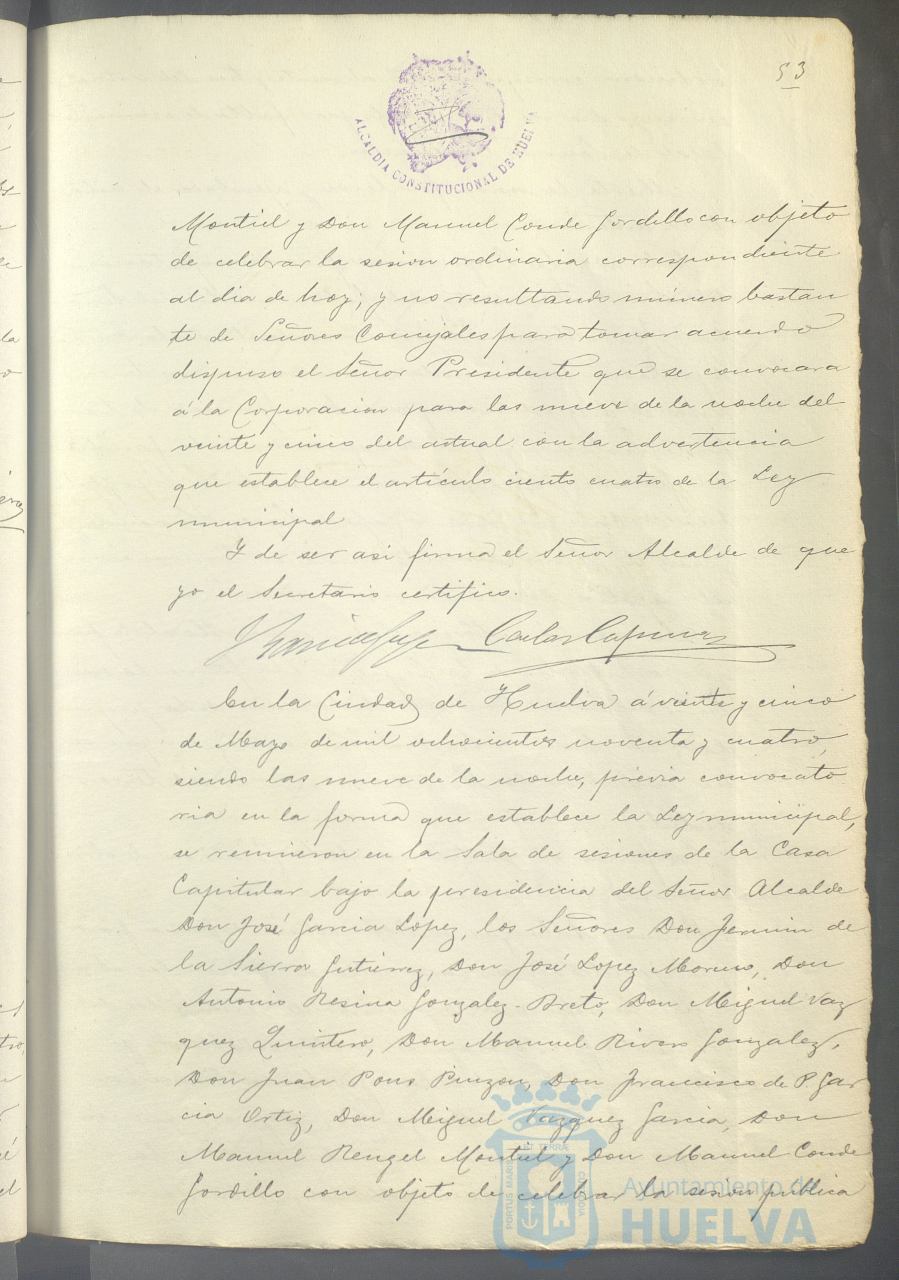 53
ALCALDIA CONSTITUCIONAL DE HUELVA
Montiel y Don Manuel Conde Gordillo con objeto
de celebrar la sesion ordinaria correspondiente
al dia de hoy; y no resultando número bastan
te de Señores Concejales para tomar acuerdo
dispuso el Señor Presidente que se convocara
á la Corporacion para las nueve de la noche del
veinte y cinco del actual con la advertencia
que establece el artículo ciento cuatro de la Ley
municipal
Y de ser asi firma el Señor Alcalde de que
yo el Secretario certifico.
En la Ciudad de Huelva á veinte y cinco
de Mayo de mil ochocientos noventa y cuatro,
siendo las nueve de la noche, previa convocato
ria en la forma que establece la Ley municipal,
se reunieron en la Sala de sesiones de la Casa
Capitular bajo la presidencia del Señor Alcalde
Don José Garcia Lopez, los Señores Don Fermin de
la Sierra Gutiérrez, Don José Lopez Moreno, Don
Antonio Resina Gonzalez-Breto, Don Miguel Vaz
quez Quintero, Don Manuel Rivero Gonzalez,
Don Juan Pons Pinzon, Don Francisco de P. Gar
cia Ortiz, Don Miguel Vazquez Garcia, Don
Manuel Rengel Montiel y Don Manuel Conde
Gordillo con objeto de celebrar la sesion publica
PORTUS MARIS ET TERRÆ CUSTODIA
Ayuntamiento de
HUELVA